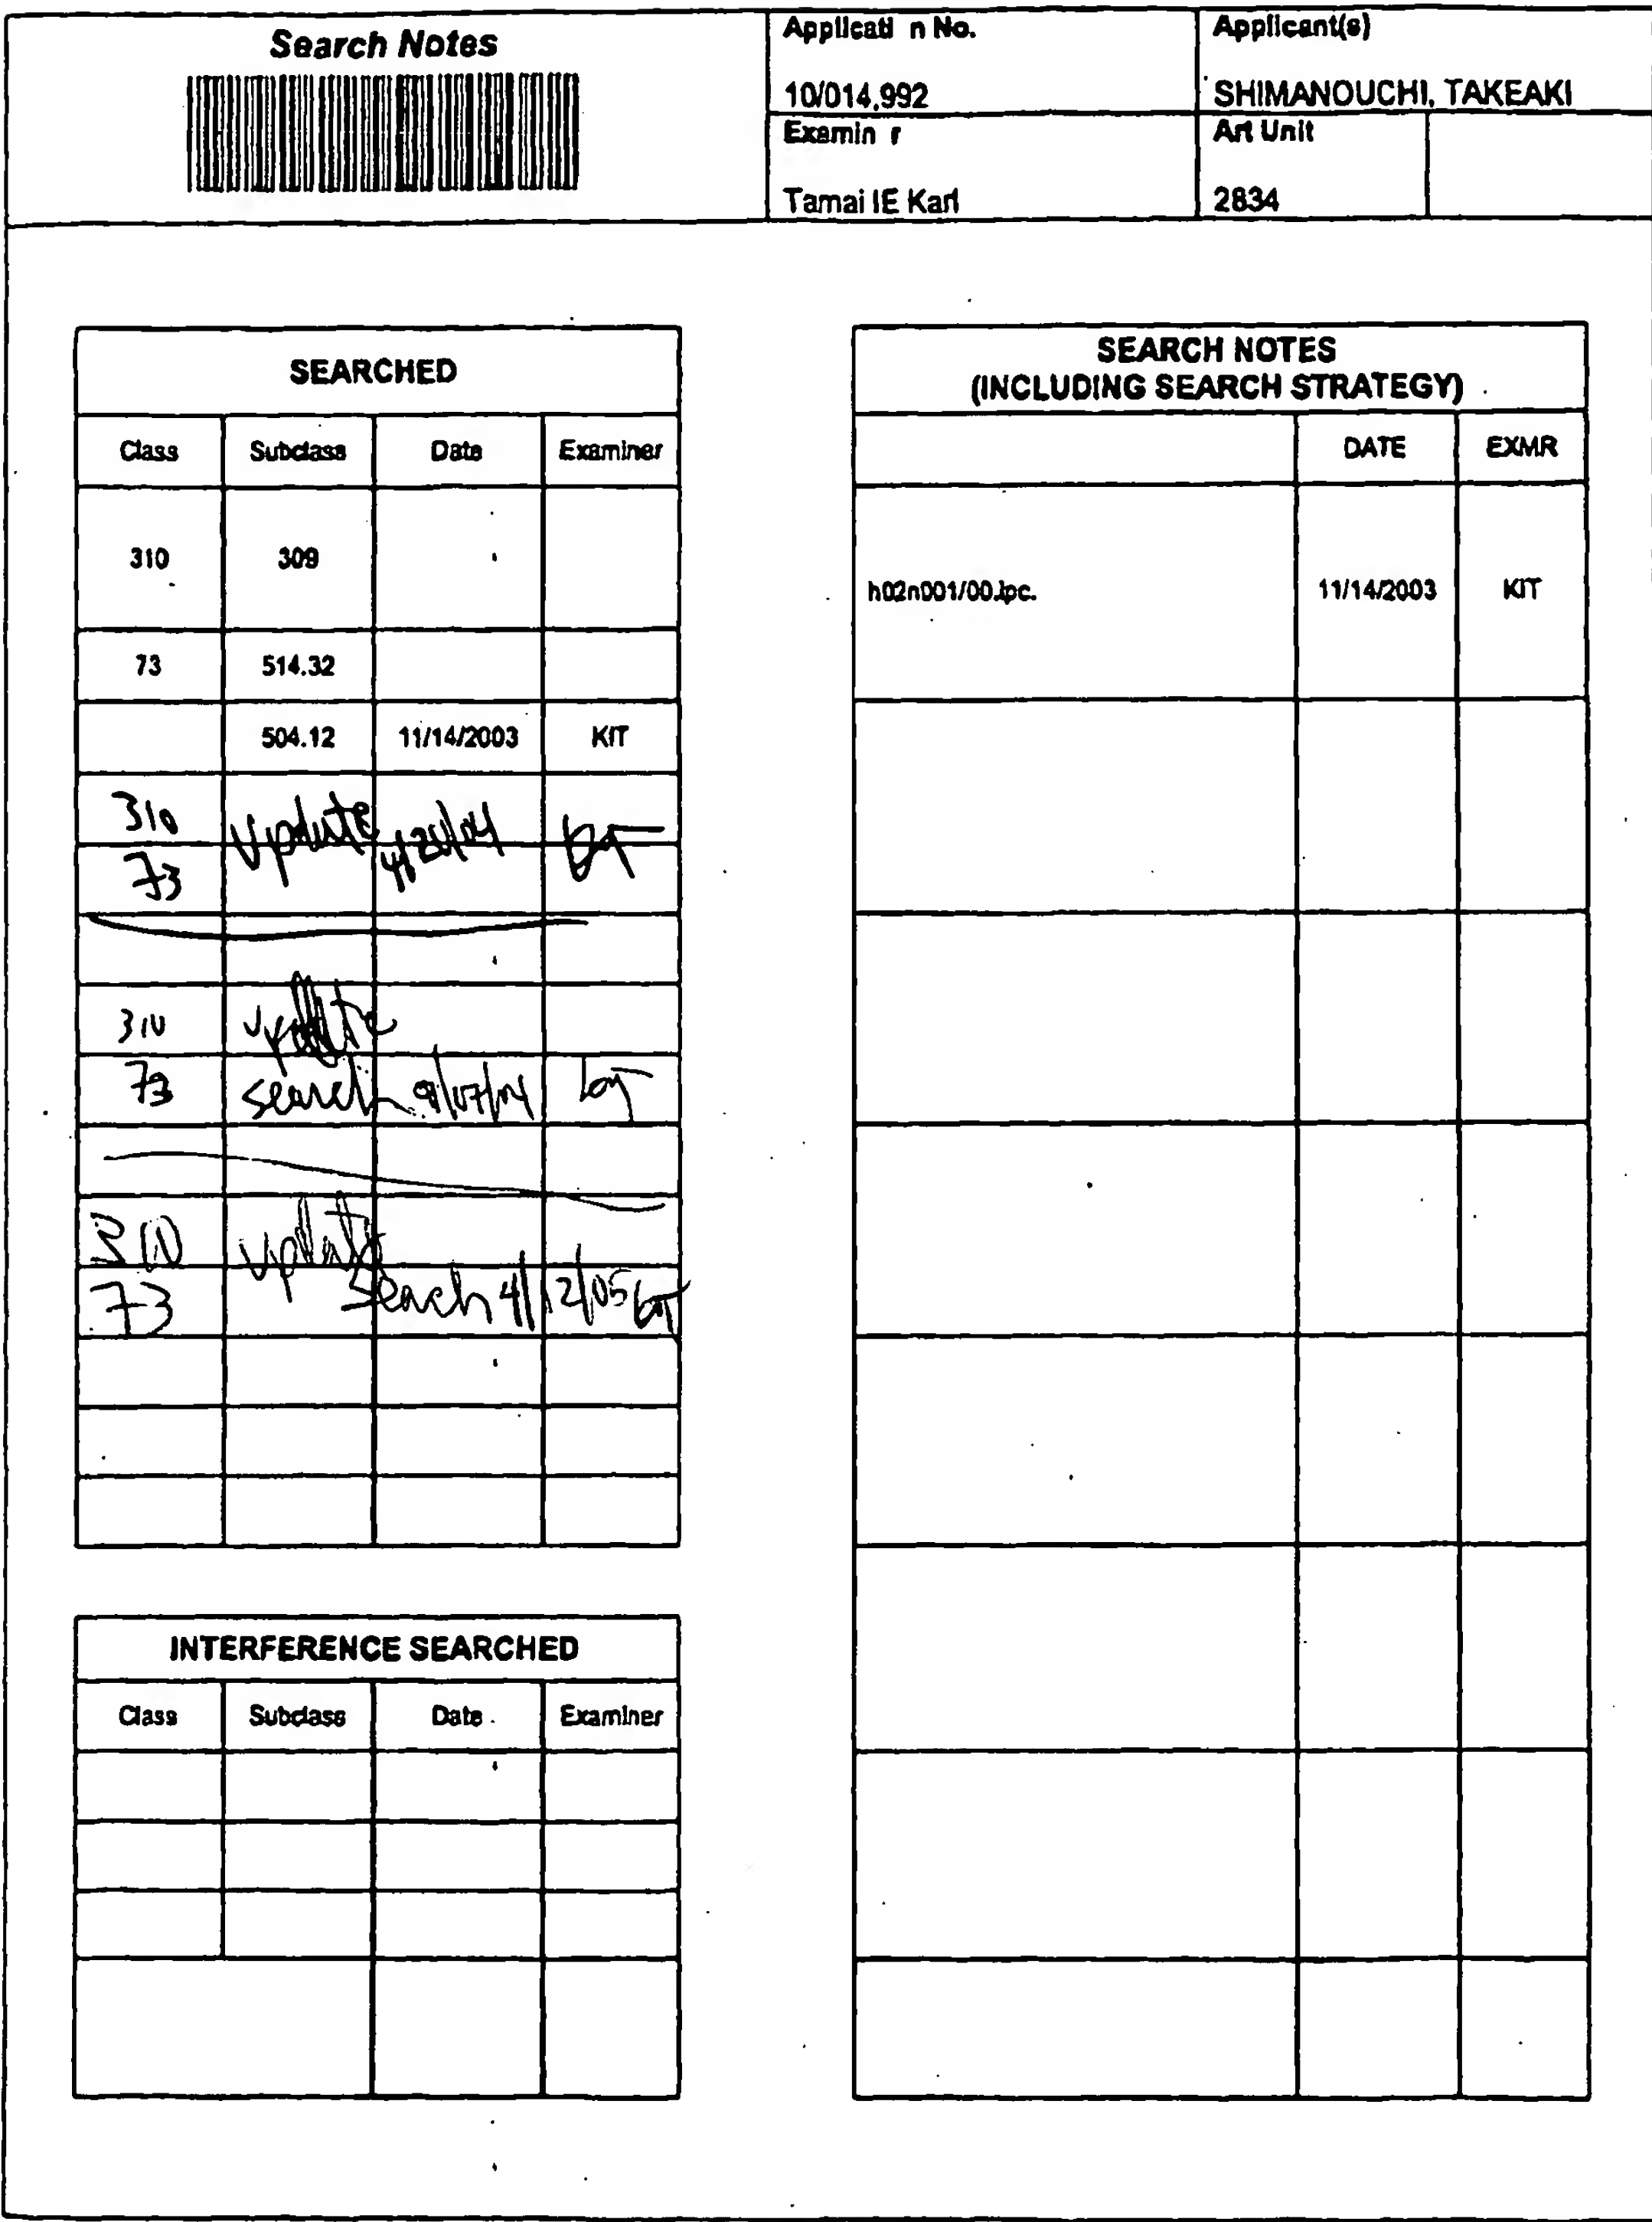 Search Notes
Applicati n No.
10/014,992
Applicant(s)
SHIMANOUCHI, TAKEAKI
Examin r
Tamai IE Karl
Art Unit
2834
SEARCHED
Class Subclass Date Examiner
310 309
73 514.32
504.12 11/14/2003 KIT
310 update
73
310 update
73 search
310 update
73 Seach 4/12/05
INTERFERENCE SEARCHED
Class Subclass Date Examiner
SEARCH NOTES
(INCLUDING SEARCH STRATEGY)
DATE EXMR
h02n001/00.ipc. 11/14/2003 KIT